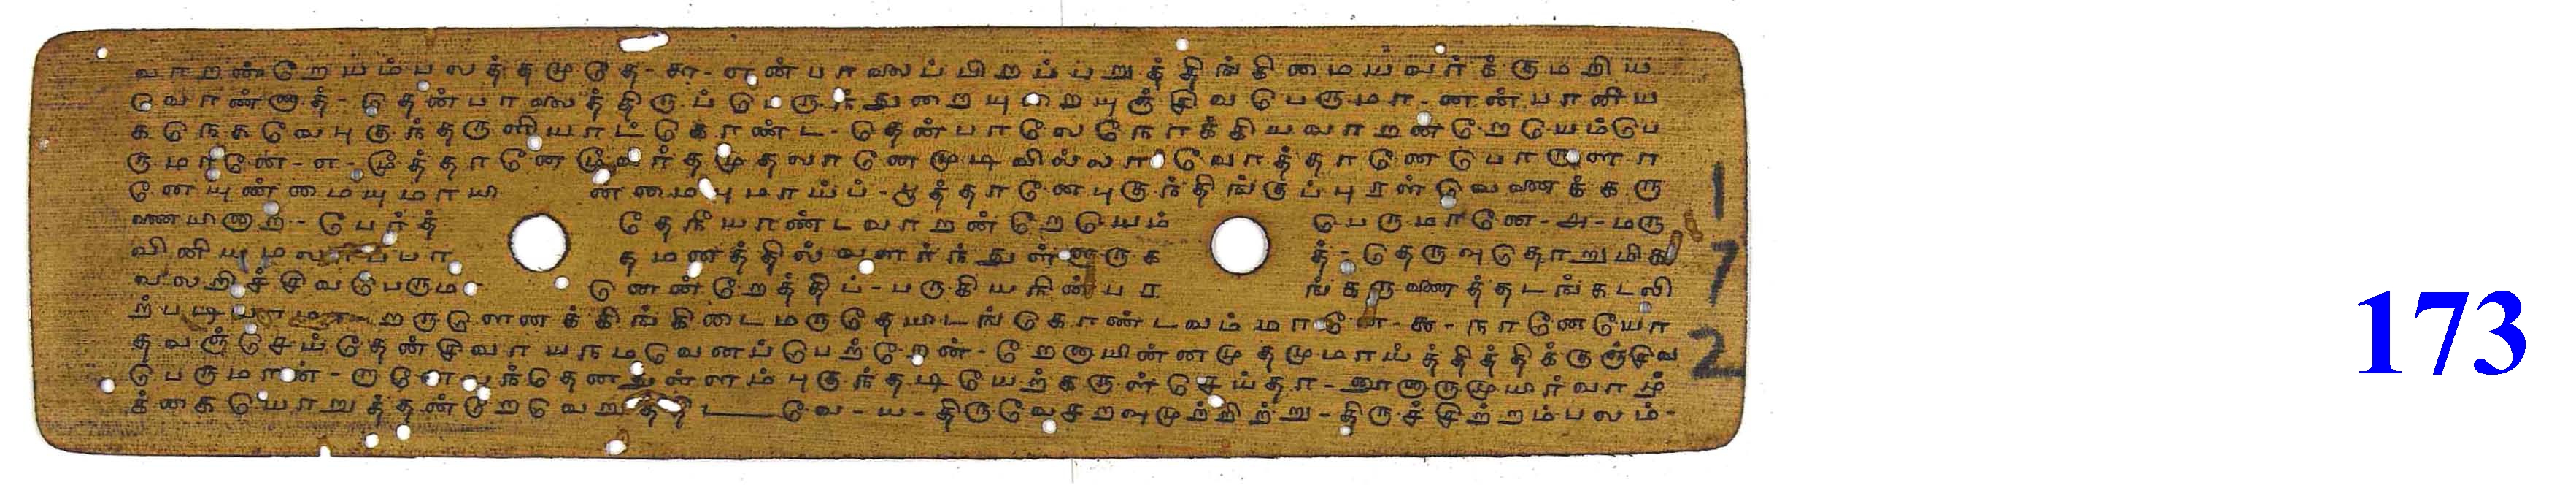 வாறன்றேயம்பலத்தமுதே-சு-என்பாலைப்பிறப்பறுத்திங்கிமையவர்க்குமறிய
வொண்ணாத்-தென்பாலைத்திருப்பெருந்துறையுறையுஞ்சிவபெருமா-னன்பானீய
கநெகவேபுகுந்தருளியாட்கொண்ட-தென்பாலேநோக்கியவாறன்றேயெம்பெ
ருமானே-எ-மூத்தானேமூவாதமுதலானேமுடிவில்லாவோத்தானேபொருளா
னேயுண்மையுமாயின்மையுமாய்ப்-பூத்தானேபுகுந்திங்குப்புரள்வேனைக்கரு
ணையினாற்-பேர்த் தேநீயாண்டவாறன்றேயெம் பெருமானே-அ-மரு
வினியமலர்ப்பா தமனத்தில்வளர்ந்துள்ளுருக த்-தெருவுதொறுமிக
வலறிச்சிவபெருமா னென்றேத்திப்-பருகியநின்பர ங்கருணைத்தடங்கடலி
ற்படிவாமாறருளெனக்கிங்கிடைமருதேயிடங்கொண்டவம்மானே-கூ-நானேயோ
தவஞ்செய்தேன்சிவாயநமவெனப்பெற்றேன்-றேனாயின்னமுதமுமாய்த்தித்திக்குஞ்சிவ
பெருமான்-றானேவந்தெனதுள்ளம்புகுந்தடியேற்கருள்செய்தா-னூனாருமுயிர்வாழ்
க்கையொறுத்தன்றேவெறுத்தி வே-ய-திருவேசறவுமுற்றிற்று-திருச்சிற்றம்பலம்-
172
173